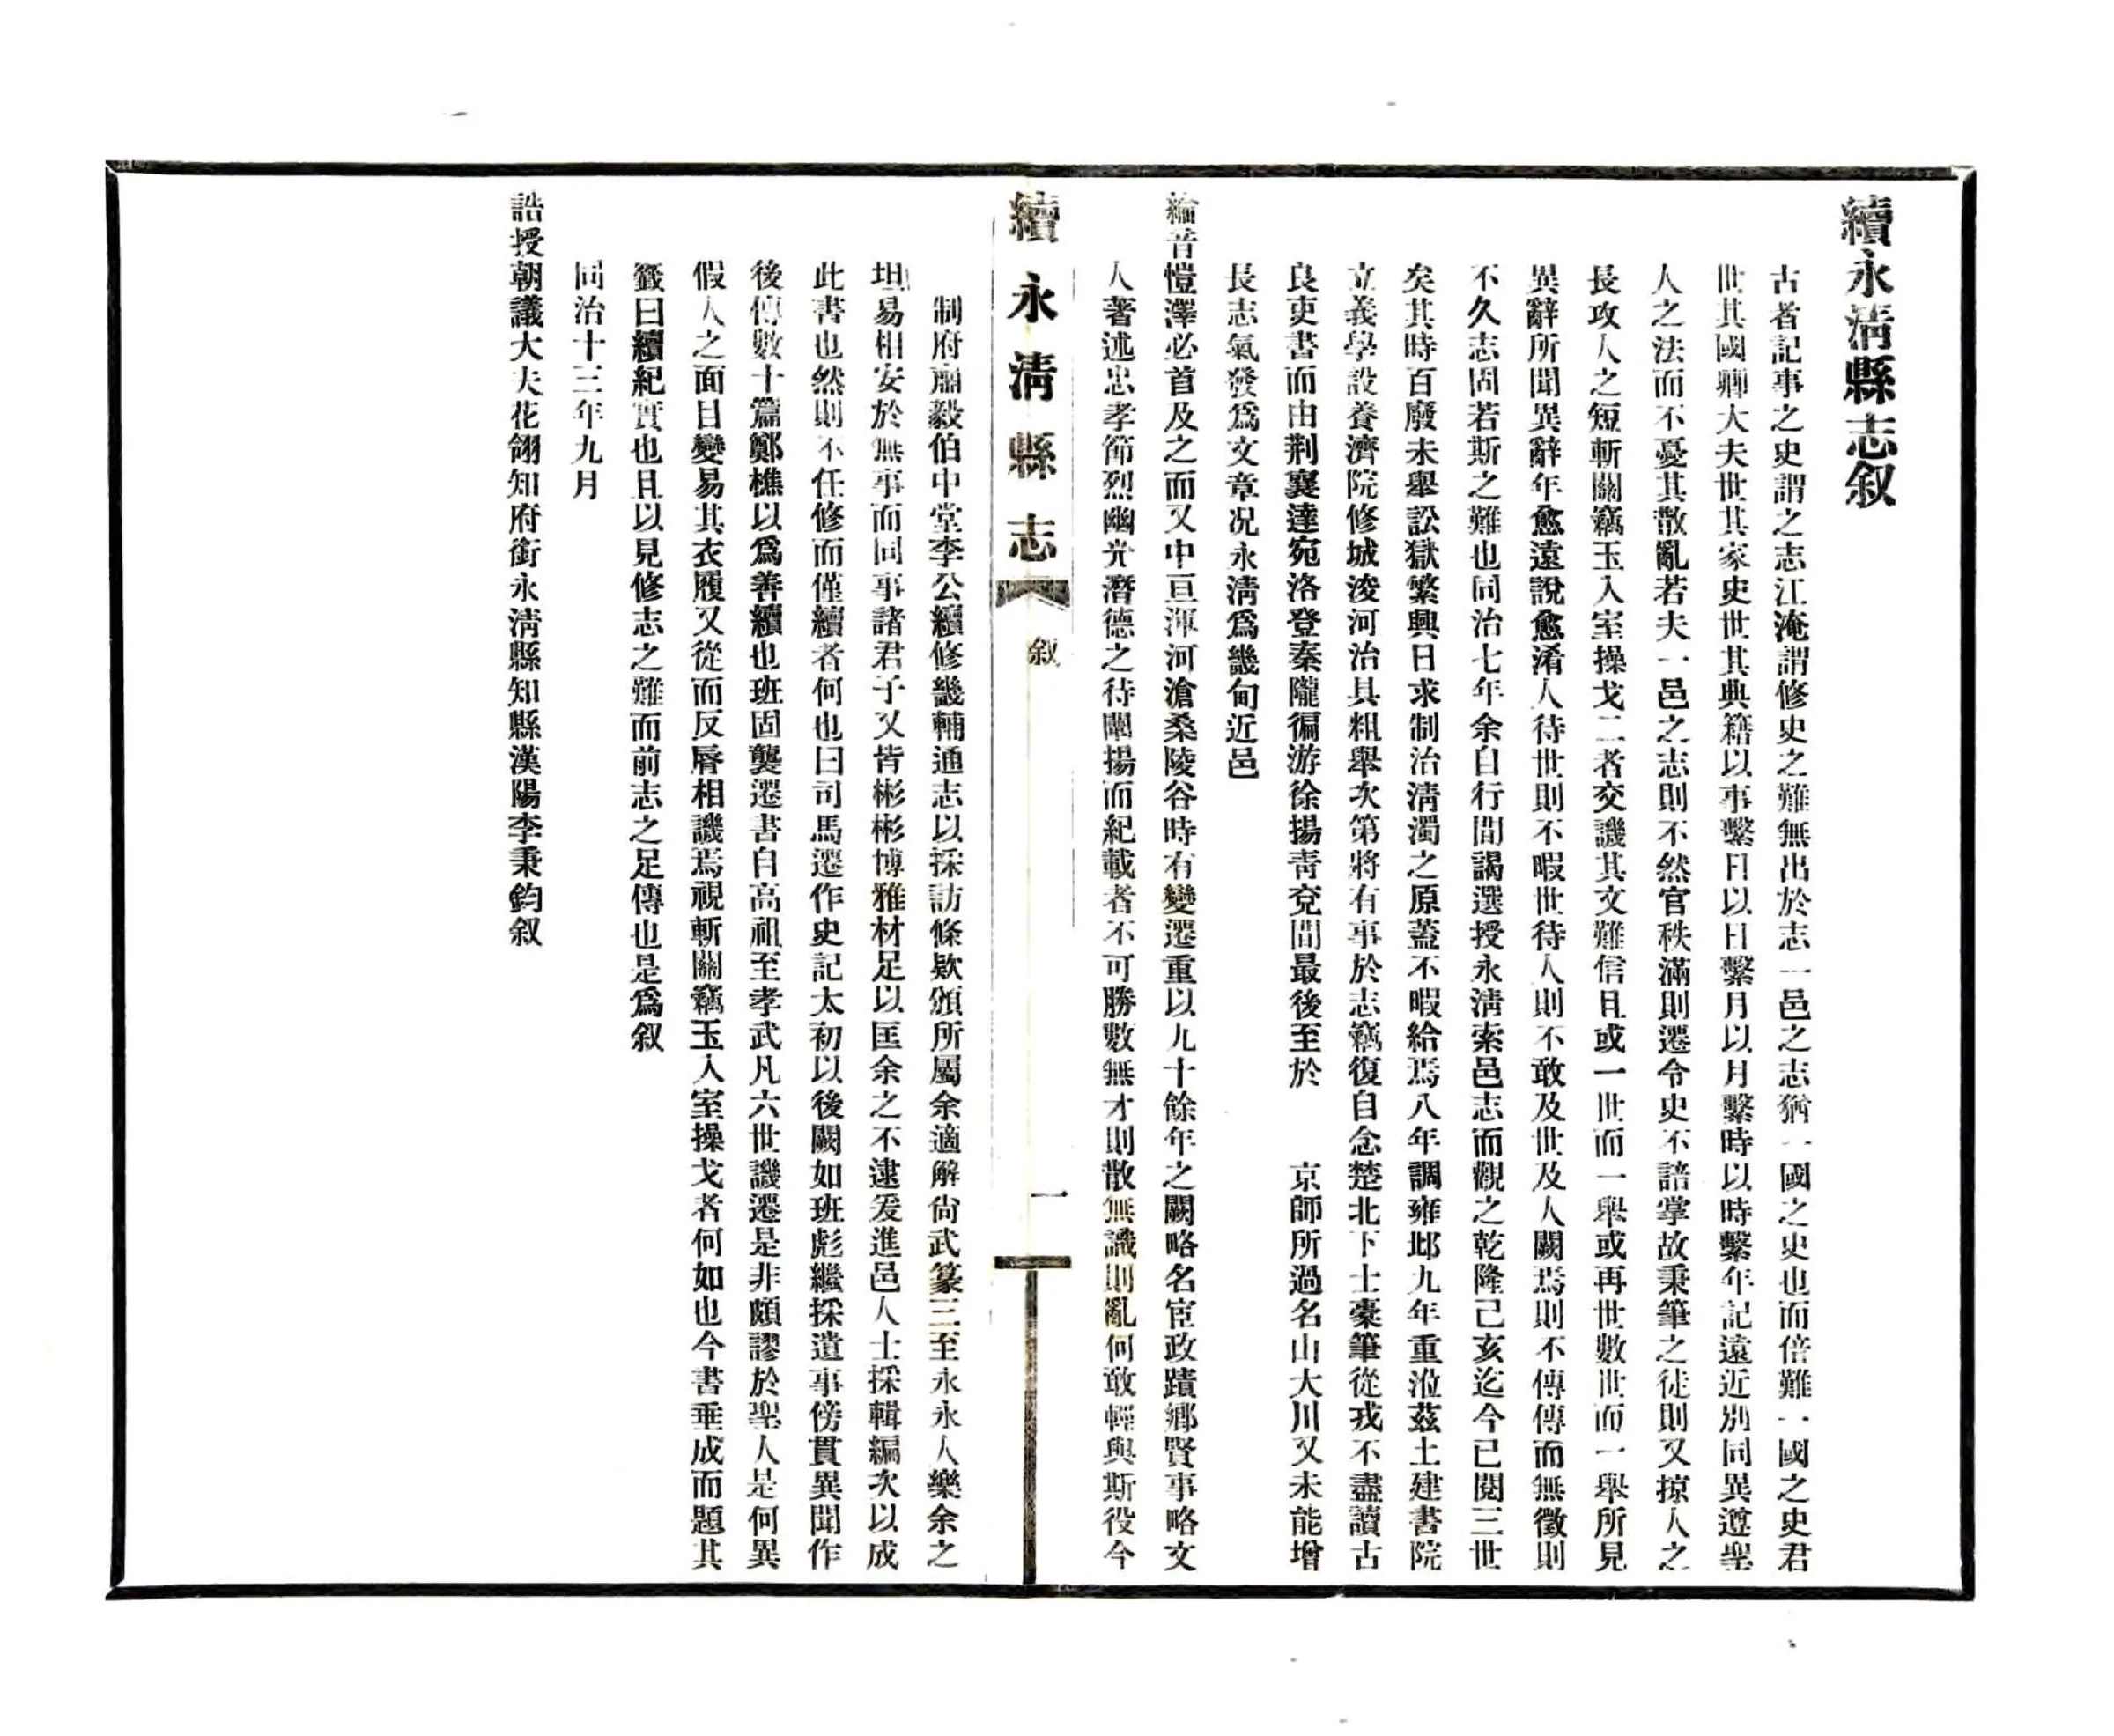 續永淸縣志叙
古者記事之史謂之志江淹謂修史之難無出於志一邑之志猶一國之史也而倍難一國之史君
世其國卿大夫世其家史世其典籍以事繫日以日繫月以月繫時以時繫年記遠近別同異遵聖
人之法而不憂其散亂若夫一邑之志則不然官秩滿則遷令史不諳掌故秉筆之徒則又掠人之
長攻人之短斬關竊玉入室操戈二者交譏其文難信且或一世而一舉或再世數世而一舉所見
異辭所聞異辭年愈遠說愈淆人待世則不暇世待人則不敢及世及人闕焉則不傳傳而無徵則
不久志固若斯之難也同治七年余自行間謁選授永淸索邑志而觀之乾隆己亥迄今已閱三世
矣其時百廢未舉訟獄繁興日求制治淸濁之原蓋不暇給焉八年調雍邶九年重涖茲土建書院
立義學設養濟院修城浚河治具粗舉次第將有事於志竊復自念楚北下士槖筆從戎不盡讀古
良吏書而由荆襄達宛洛登秦隴徧游徐揚靑兗間最後至於　京師所過名山大川又未能增
長志氣發爲文章况永淸爲畿甸近邑
綸音愷澤必首及之而又中亘渾河滄桑陵谷時有變遷重以九十餘年之闕略名宦政蹟鄉賢事略文
人著述忠孝節烈幽光潛德之待闡揚而紀載者不可勝數無才則散無識則亂何敢輕與斯役今
續永淸縣志　叙　一
制府肅毅伯中堂李公續修畿輔通志以採訪條欵頒所屬余適解尙武篆三至永永人樂余之
坦易相安於無事而同事諸君子又皆彬彬博雅材足以匡余之不逮爰進邑人士採輯編次以成
此書也然則不任修而僅續者何也曰司馬遷作史記太初以後闕如班彪繼採遺事傍貫異聞作
後傳數十篇鄭樵以爲善續也班固襲遷書自高祖至孝武凡六世譏遷是非頗謬於聖人是何異
假人之面目變易其衣履又從而反脣相譏焉視斬關竊玉入室操戈者何如也今書垂成而題其
籤曰續紀實也且以見修志之難而前志之足傳也是爲叙
同治十三年九月
誥授朝議大夫花翎知府銜永淸縣知縣漢陽李秉鈞叙